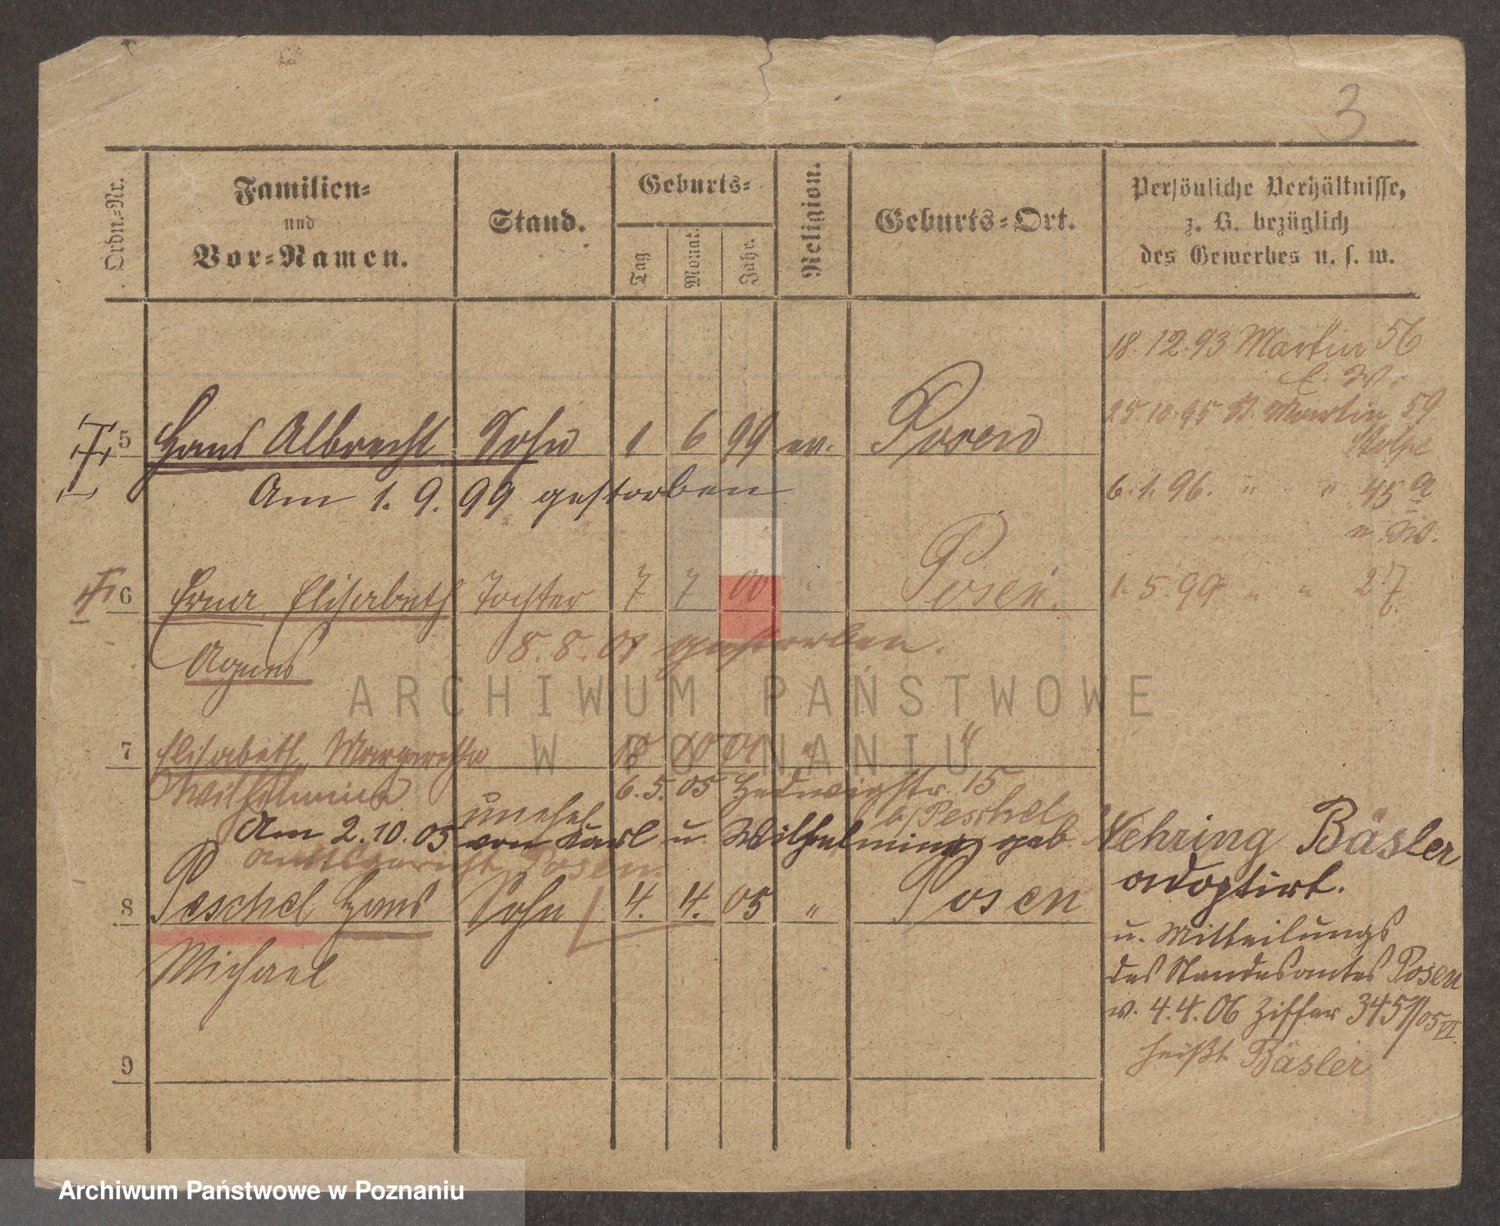 3
Ordn.-Nr.
Familien-
und
Vor-Namen.
Stand.
Geburts-
Tag.
Monat.
Jahr.
Religion.
Geburts-Ort.
Persönliche Verhältnisse,
z. B. bezüglich
des Gewerbes u. s. w.
18.12.93 Martin 56
15.10.95 St. Martin 59
5 Hans Albrecht Sohn 1 6 99 ev. Posen
Am 1.9.99 gestorben
6.1.96. " " 45 a
6 Erna Elisabeth Tochter 7 7 00 " Posen. 1.5.99 " " 27
Agnes
8.8.01 gestorben.
ARCHIWUM PAŃSTWOWE
W POZNANIU
7 Elisabeth Margaretha 10 01 " "
Wilhelmine
6.5.05 Hedwigstr. 15
unehel b/Peschel
Am 2.10.05 von Karl u. Wilhelmine geb. Nehring Bäsler
Amtsgericht Posen.
adoptirt.
8 Peschel Hans Sohn 4. 4. 05 " Posen
u. Mitteilungs
Michael
des Standesamtes Posen
v. 4.4.06 Ziffer 3451/05 VI
heißt Bäsler
9
Archiwum Państwowe w Poznaniu